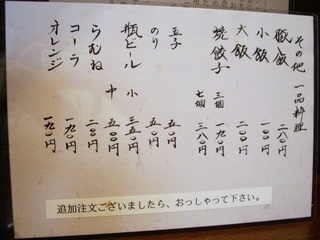 その他 一品料理
豚飯 二八〇円
小飯 一〇〇円
大飯 二〇〇円
焼餃子 三個 一九〇円
七個 三八〇円
玉子 五〇円
のり 五〇円
瓶ビール 小 三五〇円
中 五〇〇円
らむね 二〇〇円
コーラ 一九〇円
オレンジ 一九〇円
追加注文ございましたら、おっしゃって下さい。